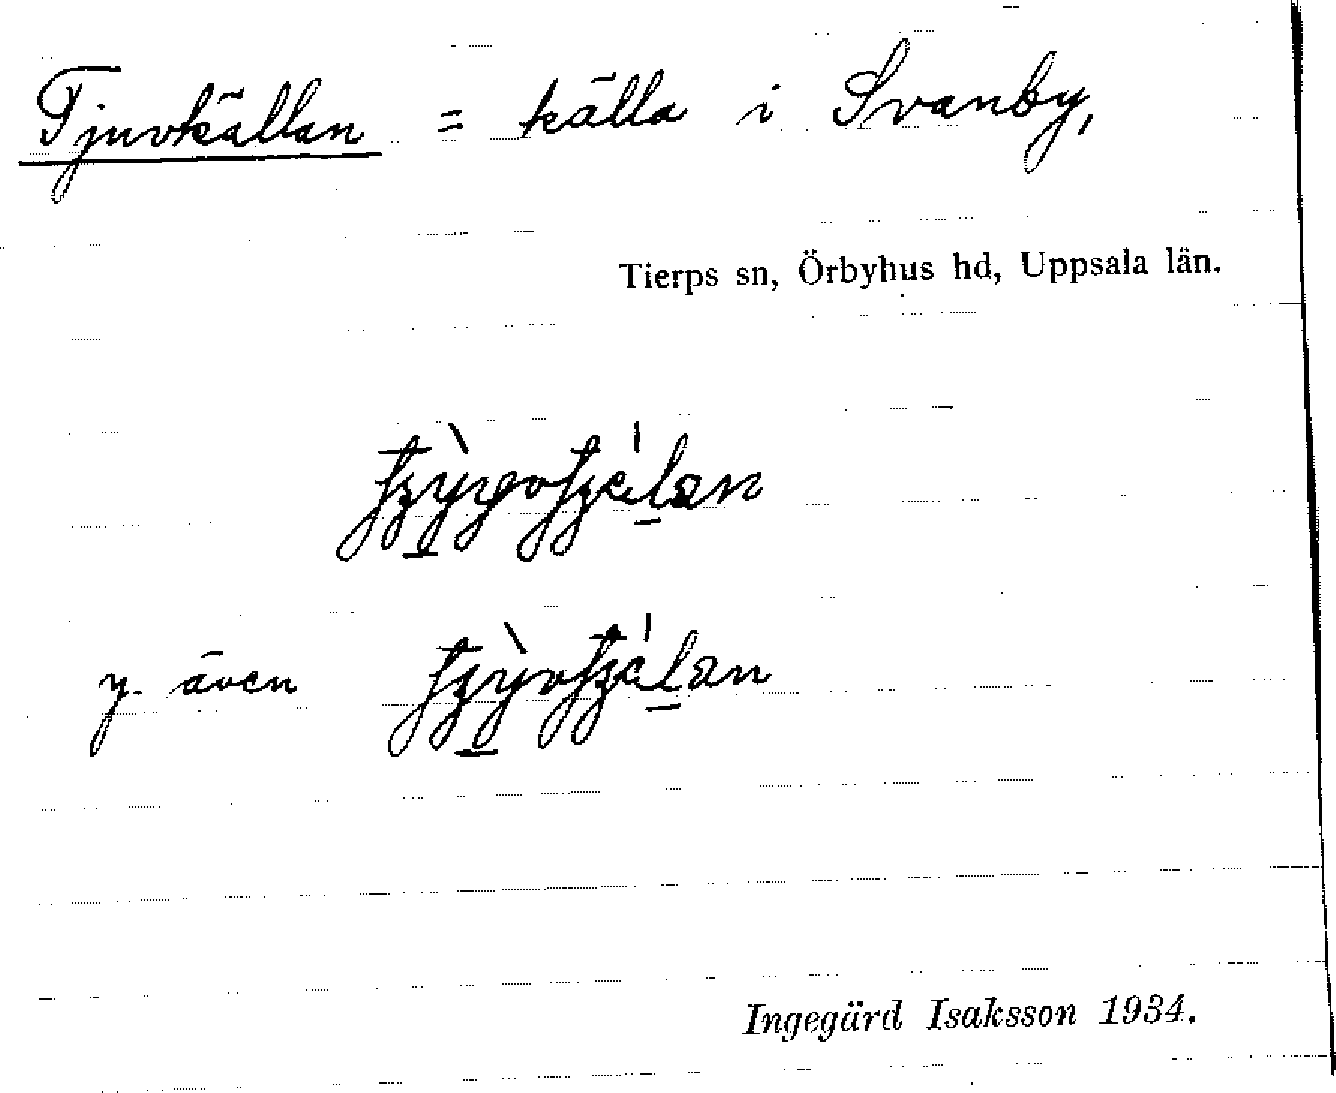 Tjuvkällan = källa i Svanby,
Tierps sn, Örbyhus hd, Uppsala län.
y. även
Ingegärd Isaksson 1934.